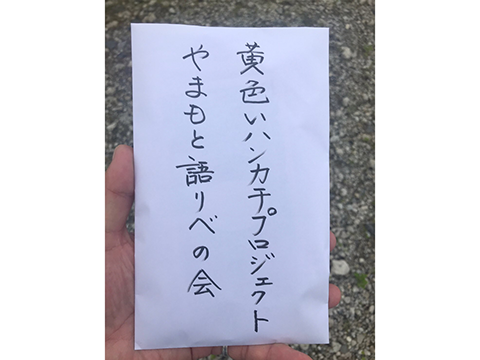 黄色いハンカチプロジェクト
やまもと語りべの会